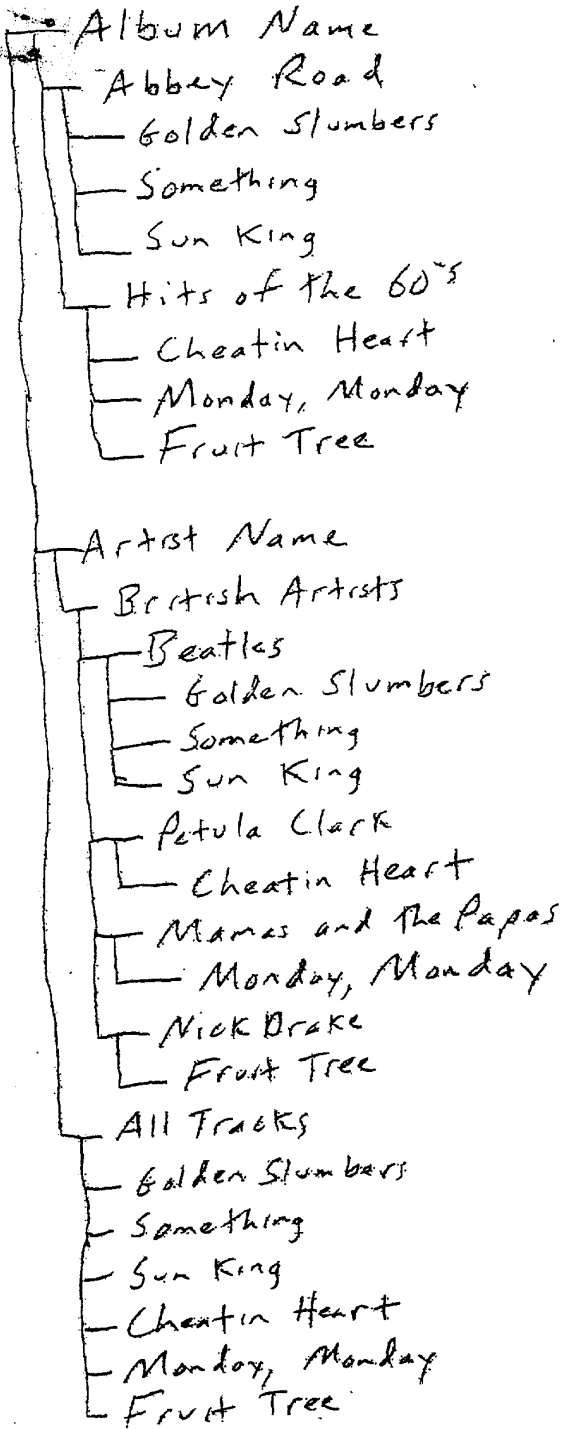 Album Name
Abbey Road
Golden Slumbers
Something
Sun King
Hits of the 60's
Cheatin Heart
Monday, Monday
Fruit Tree
Artist Name
British Artists
Beatles
Golden Slumbers
Something
Sun King
Petula Clark
Cheatin Heart
Mamas and the Papas
Monday, Monday
Nick Drake
Fruit Tree
All Tracks
Golden Slumbers
Something
Sun King
Cheatin Heart
Monday, Monday
Fruit Tree